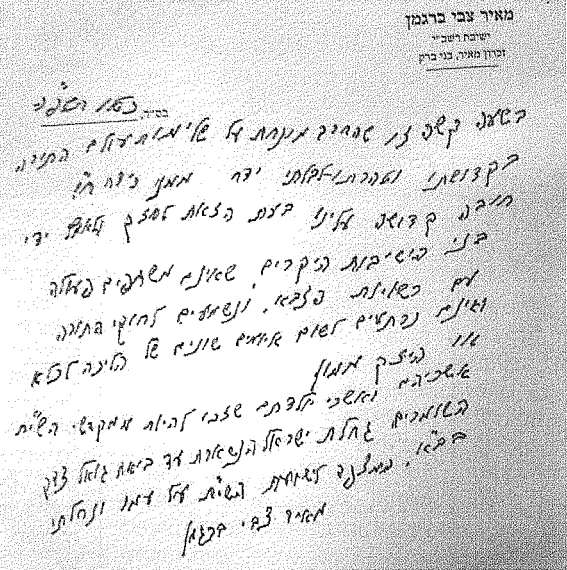 מאיר צבי ברגמן
ישיבת רשב"י
זכרון מאיר, בני ברק
בס"ד,
בשעה קשה זו שהחרב מונחת על שלימות עולם התורה
בקדושתו וטהרתו לבלתי ידח ממנו נידח ח"ו
חובה קדושה עלינו בעת הזאת לחזק ולאמץ ידי
בני הישיבות היקרים שאינם משתפים פעולה
עם רשויות הצבא, ונשמעים לחוקי התורה
ואינם נרתעים לשום איומים שונים של הליכה לכלא
או היזק ממון
אשריהם ואשרי יולדתם שזכו להיות ממקדשי השי"ת
השומרים נחלת ישראל הנשארת עד ביאת גואל צדק
בב"א. המצפה לישועת השי"ת על עמו ונחלתו
מאיר צבי ברגמן